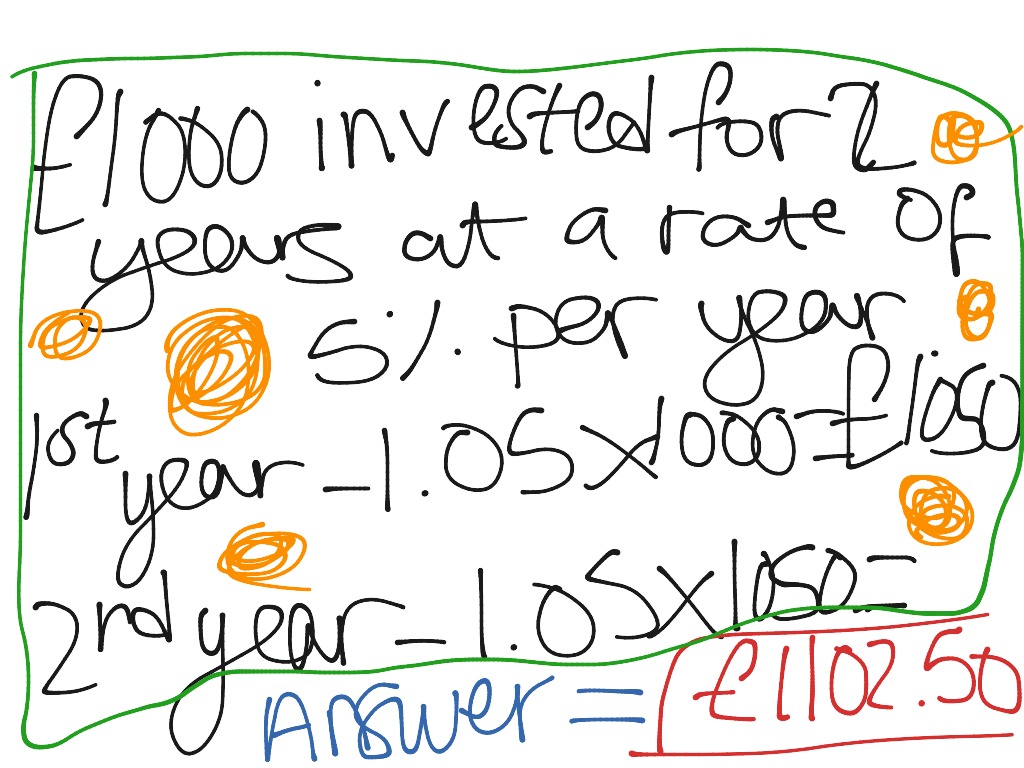 £1000 invested for 2
years at a rate of
5% per year
1st year - 1.05 x 1000 = £1050
2nd year - 1.05 x 1050 =
Answer = £1102.50